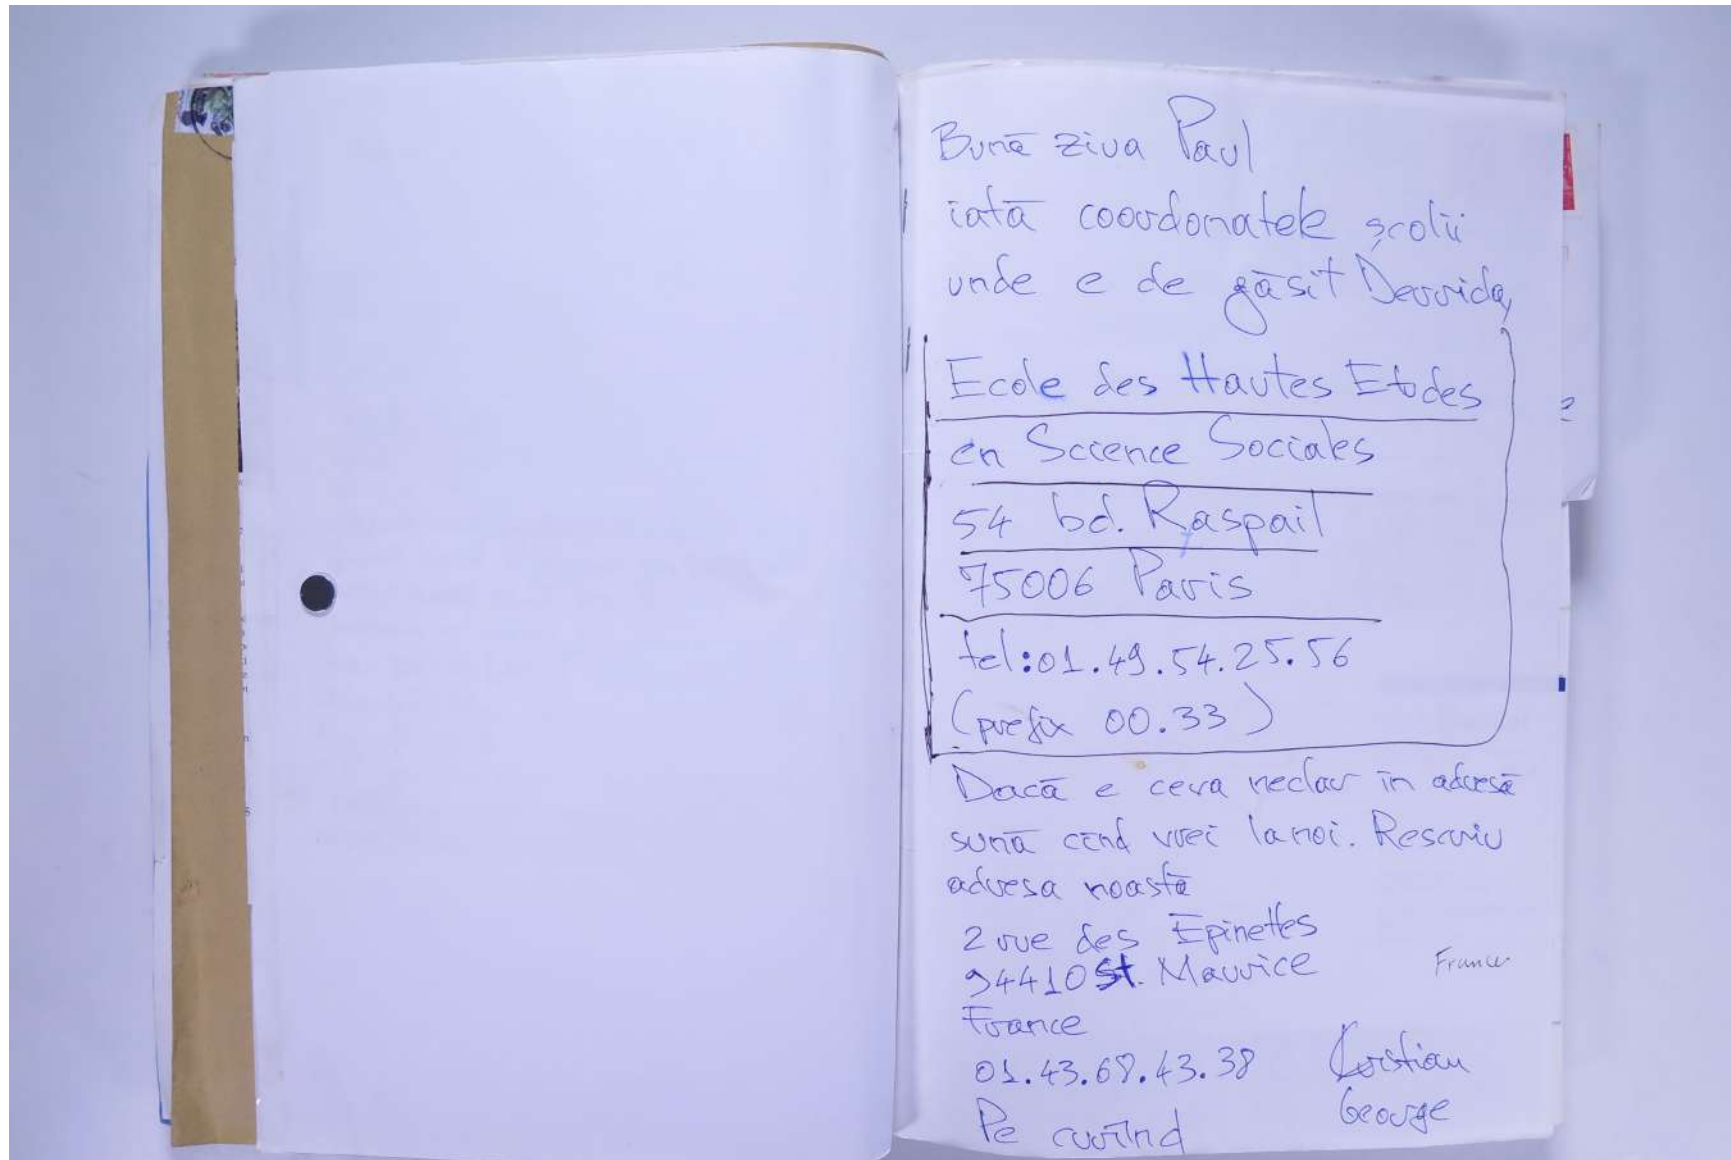 Bună ziua Paul
iată coordonatele școlii
unde e de găsit Derrida,
Ecole des Hautes Etudes
en Science Sociales
54 bd. Raspail
75006 Paris
tel:01.49.54.25.56
(prefix 00.33)
Dacă e ceva neclar în adresă
sună cînd vrei la noi. Rescriu
adresa noastă
2 rue des Epinettes
94410 St. Maurice
France
France
01.43.68.43.38
Cristian
George
Pe curînd